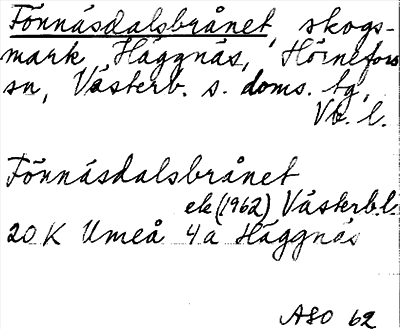 Fönnäsdalsbrånet, skogs-
mark, Häggnäs, Hörnefors
sn, Västerb. s. doms. tg,
Vb. l.
Fönnäsdalsbrånet
ek (1962) Västerb. l.
20 K Umeå 4a Häggnäs
ASO 62